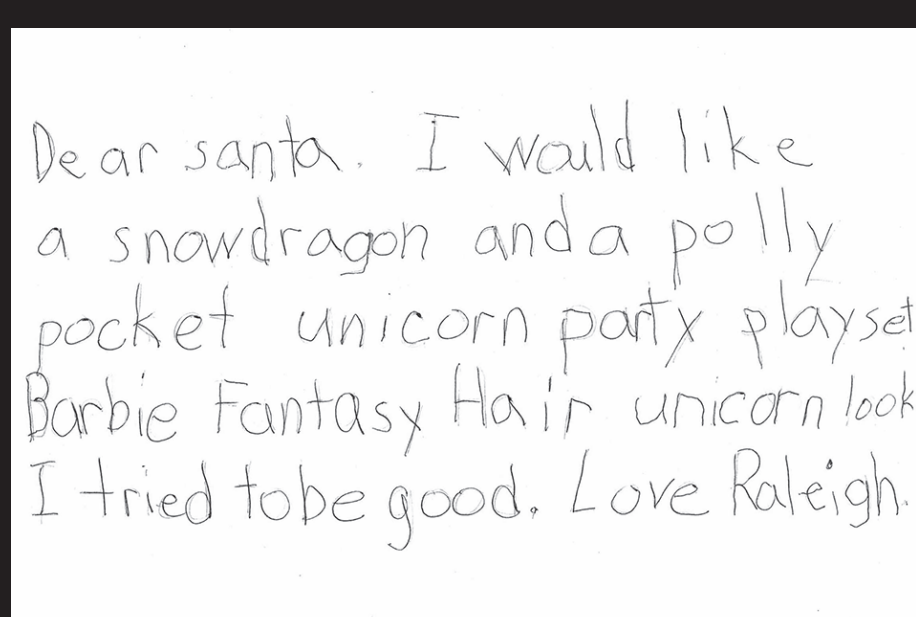 Dear santa. I would like
a snowdragon and a polly
pocket unicorn party playset
Barbie Fantasy Hair unicorn look
I tried tobe good. Love Raleigh.